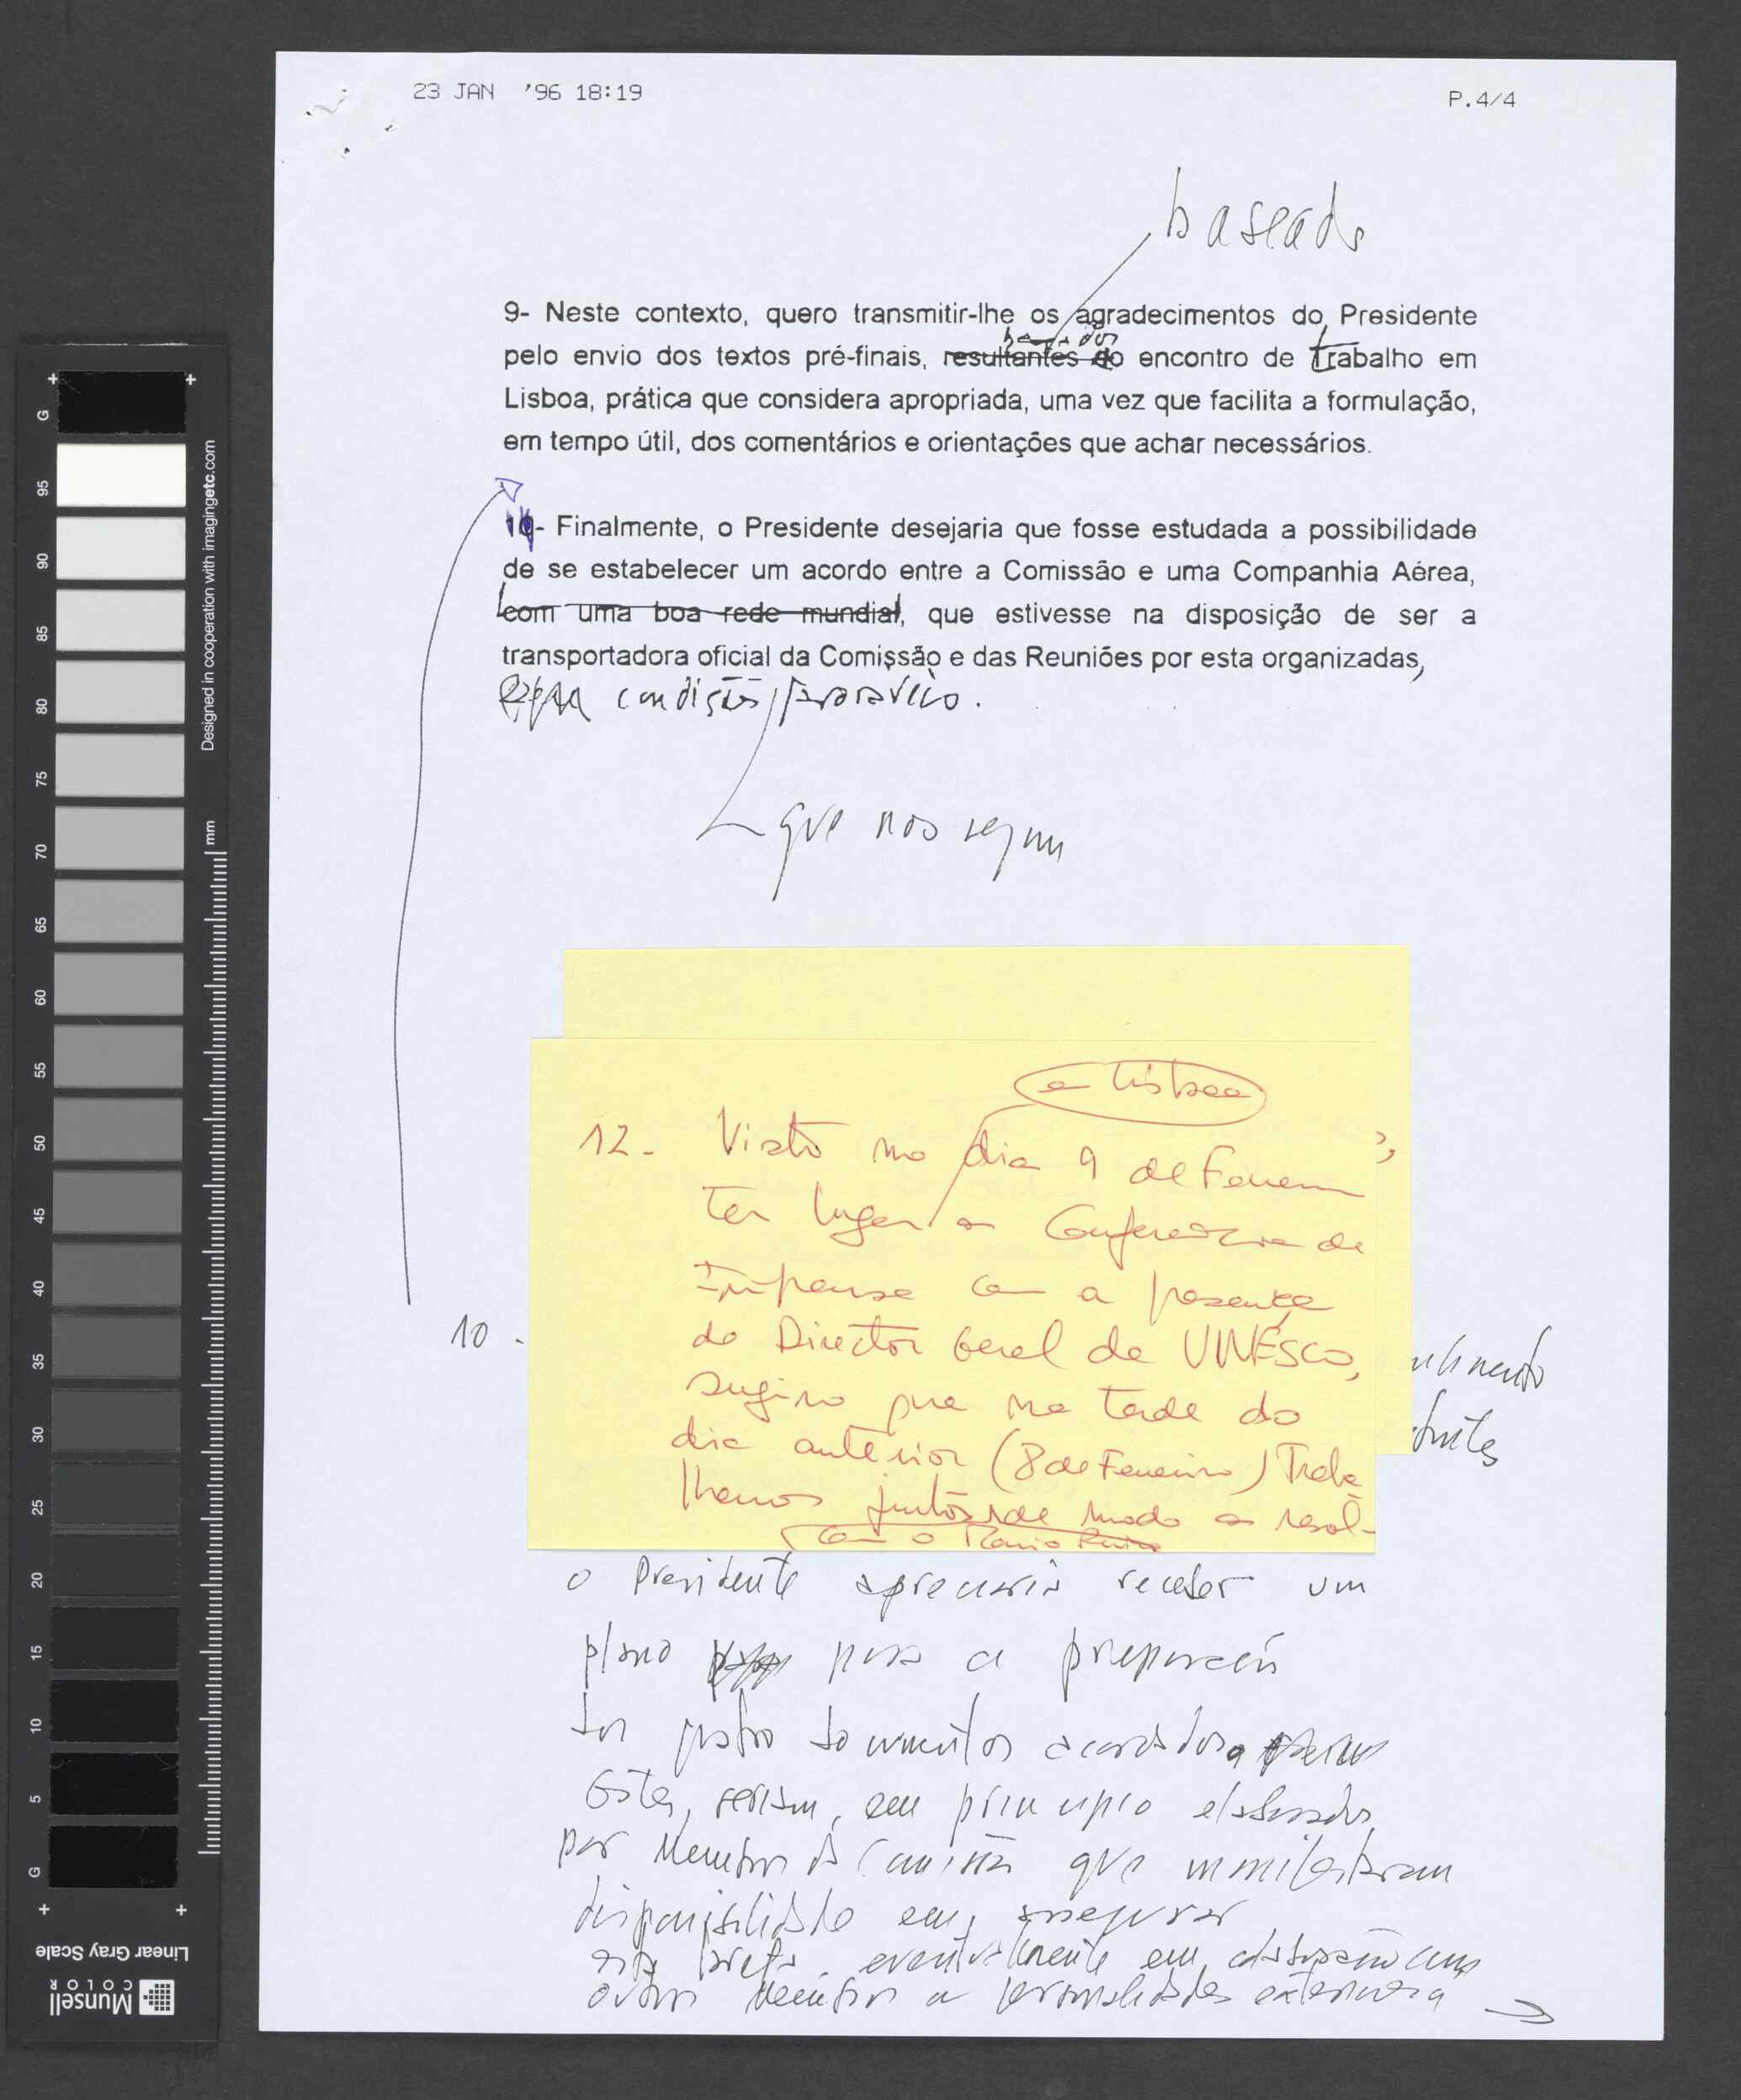 23 JAN '96 18:19
P.4/4
baseado
9- Neste contexto, quero transmitir-lhe os agradecimentos do Presidente
baseados
pelo envio dos textos pré-finais, resultantes do encontro de Trabalho em
Lisboa, prática que considera apropriada, uma vez que facilita a formulação,
em tempo útil, dos comentários e orientações que achar necessários.
- Finalmente, o Presidente desejaria que fosse estudada a possibilidade
de se estabelecer um acordo entre a Comissão e uma Companhia Aérea,
com uma boa rede mundial, que estivesse na disposição de ser a
transportadora oficial da Comissão e das Reuniões por esta organizadas,
condições favoráveis.
que nos
e Lisboa
12. Visto no dia 9 de Fevereiro
ter lugar a Conferência de
Imprensa com a presença
do Director Geral da UNESCO,
sugiro que na tarde do
dia anterior (8 de Fevereiro) Traba
lhemos juntos de modo a resol-
com o
10.
o Presidente apreciaria receber um
plano para a preparação
dos quatro documentos acordados
Estes, seriam, em principio elaborados
por Membros da Comissão que manifestaram
disponibilidade em assegurar
esta tarefa, eventualmente em com
outros membros a personalidades
Designed in cooperation with imagingetc.com
mm
G 95 90 85 80 75 70 65 60 55 50 45 40 35 30 25 20 15 10 5 G
Linear Gray Scale
Munsell
COLOR